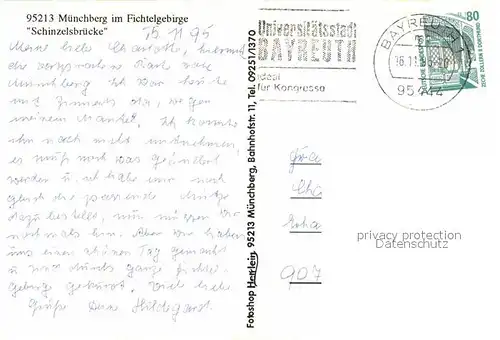 95213 Münchberg im Fichtelgebirge
"Schinzelsbrücke"
15.11.95
Meine liebe Charlotte, hiermit
die versprochene Karte von
Münchberg. Ich war heute
mit
meinem Mantel. Ich konnte
ihn noch nicht mitnehmen,
es muß noch was geändert
werden u. ich habe mir noch
gleich die passende Mütze
dazu bestellt, nun müssen wir
nochmals hin. Aber wir haben
uns einen schönen Tag gemacht
u. sind durchs ganze Fichtel-
gebirge gekurvt. Viele liebe
Grüße Deine Hildegard.
Fotoshop Herrlein, 95213 Münchberg, Bahnhofstr. 11, Tel. 09251/1370
Universitätsstadt
BAYREUTH
ideal
für Kongresse
BAYREUTH
16.11.95
95444
80
DEUTSCHE BUNDESPOST
ZECHE ZOLLERN II DORTMUND
907
privacy protection
Datenschutz